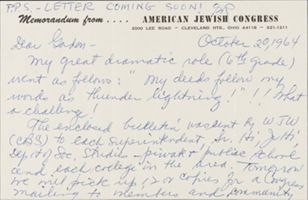 P.P.S. - LETTER COMING SOON!
Memorandum from .... AMERICAN JEWISH CONGRESS
2000 LEE ROAD - CLEVELAND HTS., OHIO 44118 - 321-1211
October 20, 1964
Dear Gordon -
My great dramatic role (6th grade)
went as follows: "My deeds follow my
words as thunder lightning"!!! What
a challenge!
The enclosed bulletin was sent by WJW
(CBS) to each Superintendent, Sr. Hi, Jr. Hi,
Dept of Soc. Studies - private & public school
and each college in the area. Tomorrow
we will pick up copies for a Congress
mailing to members and community